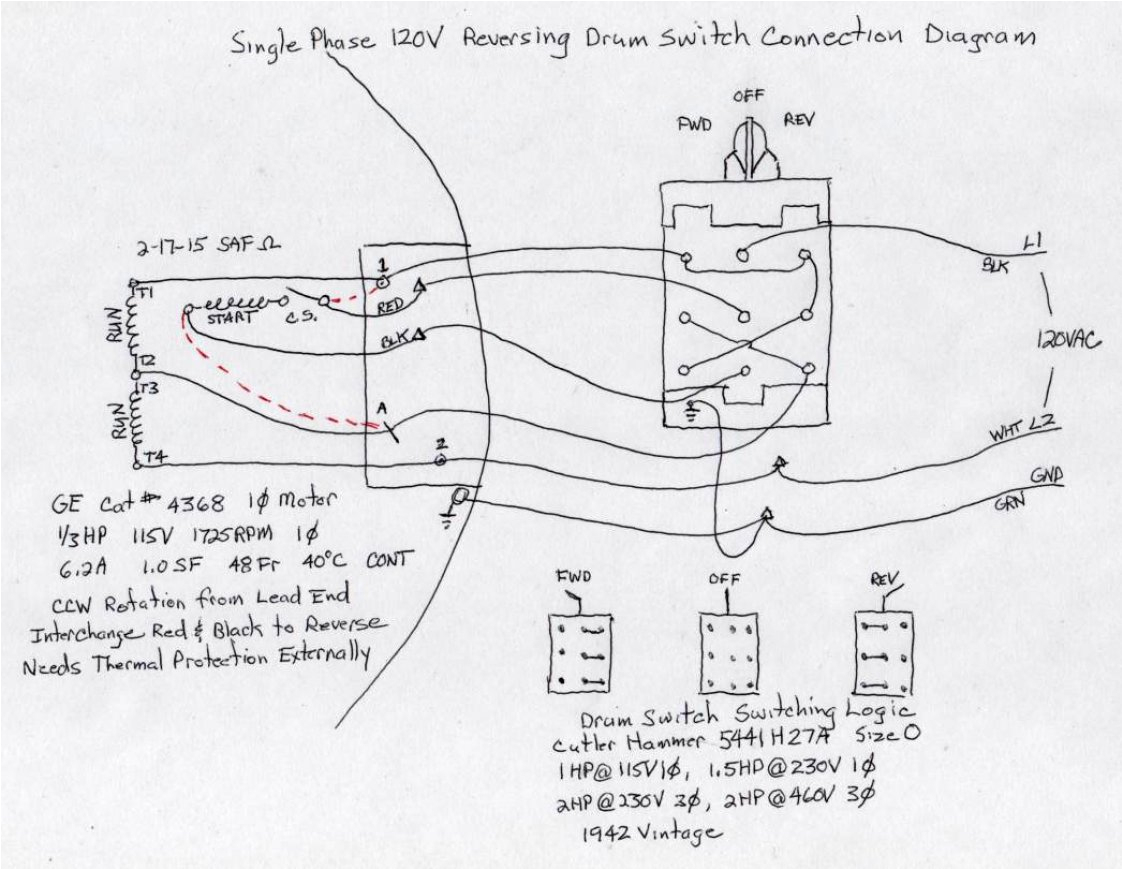 Single Phase 120V Reversing Drum Switch Connection Diagram
OFF
FWD
REV
2-17-15 SAF Ω
1
L1
BLK
T1
RED
START
C.S.
RUN
BLK
120VAC
T2
T3
A
RUN
WHT L2
2
T4
GND
GRN
GE Cat # 4368 1ϕ Motor
1/3 HP 115V 1725RPM 1ϕ
6.2A 1.0 SF 48Fr 40°C CONT
CCW Rotation from Lead End
Interchange Red & Black to Reverse
Needs Thermal Protection Externally
FWD
OFF
REV
Drum Switch Switching Logic
Cutler Hammer 5441H27A Size O
1HP@115V1ϕ, 1.5HP@230V 1ϕ
2HP@230V 3ϕ, 2HP@460V 3ϕ
1942 Vintage